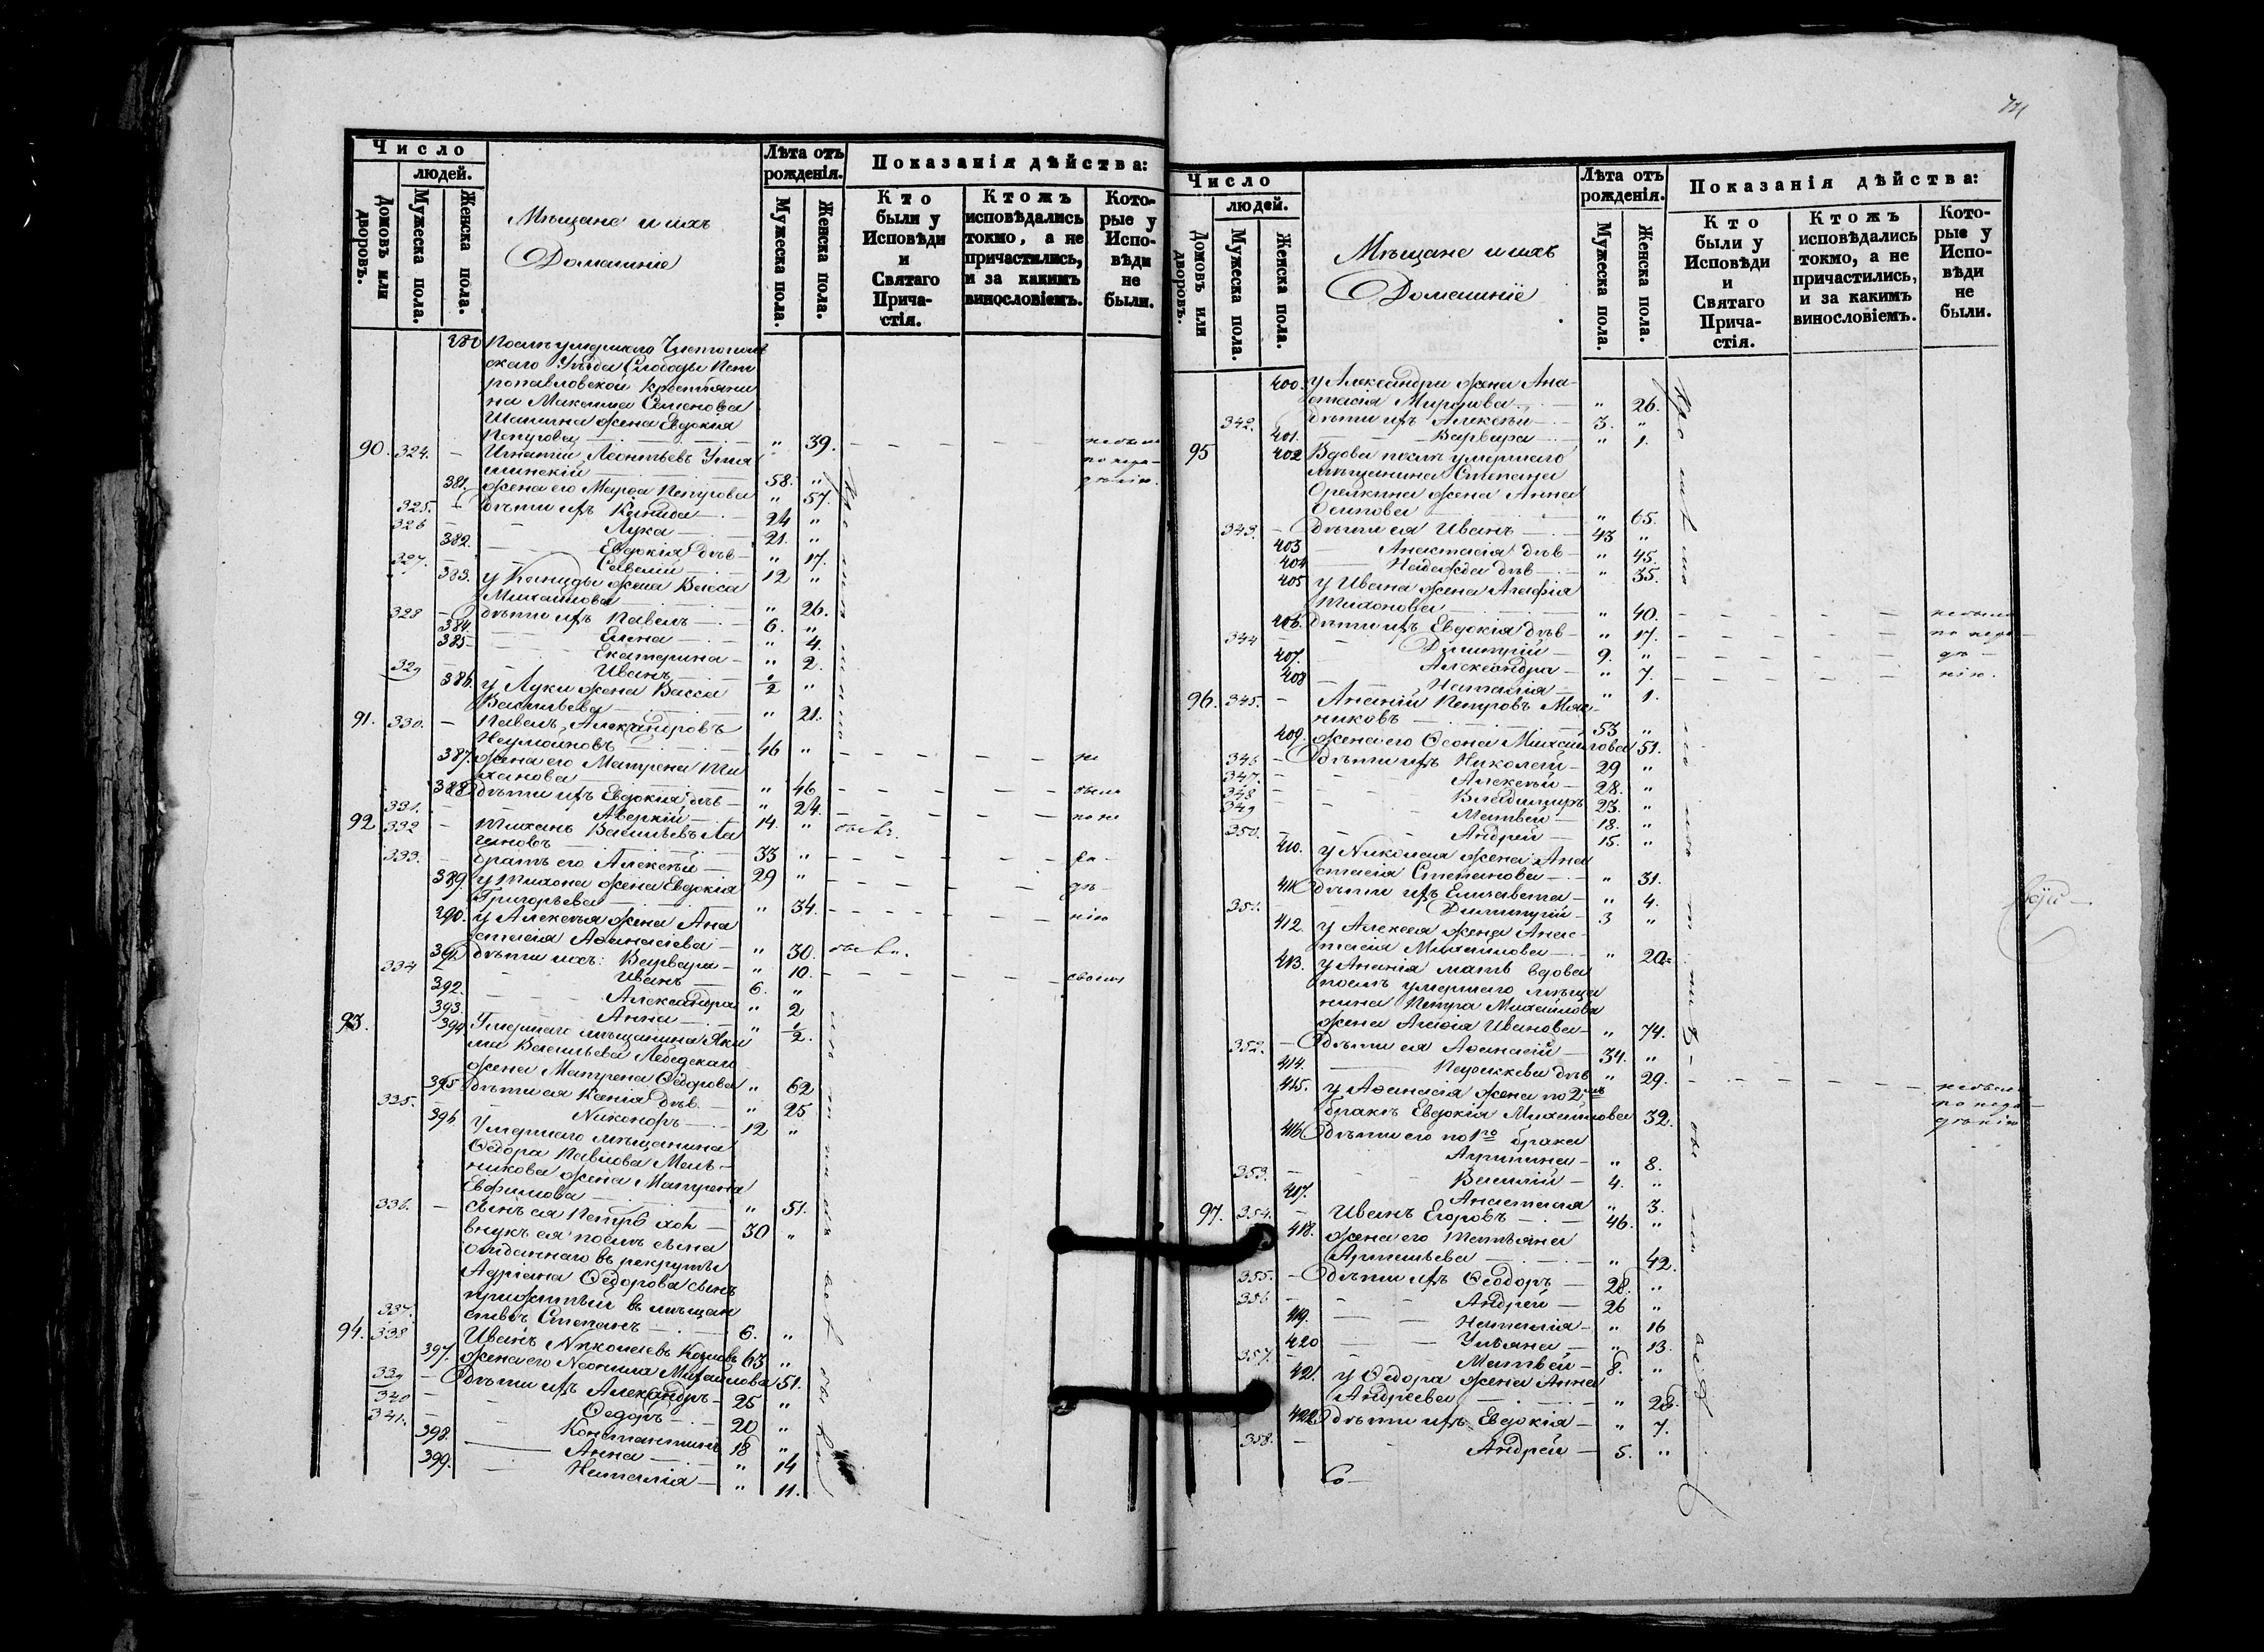 Число
людей.
Домовъ или дворовъ.
Мужеска пола.
Женска пола.
Мѣщане и ихъ
Домашніе
Лѣта отъ
рожденія.
Мужеска пола.
Женска пола.
Показанія дѣйства:
Кто были у Исповѣди и Святаго Прича-стія.
Ктожъ исповѣдались токмо, а не причастились, и за какимъ винословіемъ.
Кото-рые у Испо-вѣди не были.
380 Послѣ умершаго Чистополь
скаго Уѣзда Слободы Пет
ропавловской крестьяни
на Максима Семенова
жена Евдокія
Петрова — " 39.
90. 324. — Игнатій Леонтьевъ
58. "
381. жена его Марѳа Петрова " 57.
325. дѣти ихъ 24 "
326 — Лука — 21. "
382. — Евдокія дѣв — " 17.
327. — Савелій — 12 "
383. у жена Васса
Михайлова — " 26.
328 — дѣти ихъ Павелъ — 6. "
384. — Елена — " 4.
385 — Екатерина — " 2.
329 — Иванъ — 1/2 "
386. у Луки жена Васса
Васильева — " 21.
91. 330. — Павелъ Александровъ
Неумоиновъ — 46 "
387. жена его Матрена Ти
ханова — " 46
388 дѣти ихъ Евдокія дѣв — " 24.
331. — Аверкій — 14. "
92 332 — Тиханъ Васильевъ Ла
33 "
333. — братъ его Алексѣй — 29 "
389. у Тихона жена Евдокія
Григорьева — " 34.
390. у Алексѣя жена Ана
стасія Аѳанасіева — " 30.
391 дѣти ихъ: Варвара — " 10.
334 — Иванъ — 6. "
392. — Александра " 2
393. — Анна — " 1/2.
93. 394 Умершаго мѣщанина Яки
ма Васильева Лебедскаго
жена Матрена Ѳедорова " 62
395 дѣти ея Ксенія дѣв. — " 25
335. — Никаноръ — 12 "
396 Умершаго мѣщанина
Ѳедора Павлова Мель-
никова жена Матрена
Евфимова — " 51.
336. — сынъ ея Петръ хол — 30 "
внукъ ея послѣ сына
отданнаго въ рекруты
Адріана Ѳедорова сынъ
прижитый въ мѣщан
337. ствѣ Степанъ — 6. "
94. 338 Иванъ Николаевъ Козловъ 63 "
397. жена его Неонила Михайлова 51.
339 — дѣти ихъ Александръ — 25 "
340 — Ѳедоръ — 20 "
341. — Константинъ 18 "
398. — Анна — " 14
399. — Наталія — " 11.
Число
людей.
Домовъ или дворовъ.
Мужеска пола.
Женска пола.
Мѣщане и ихъ
Домашніе
Лѣта отъ
рожденія.
Мужеска пола.
Женска пола.
Показанія дѣйства:
Кто были у Исповѣди и Святаго Прича-стія.
Ктожъ исповѣдались токмо, а не причастились, и за какимъ винословіемъ.
Кото-рые у Испо-вѣди не были.
400. у Александра жена Ана-
стасія Миронова — " 26.
342. дѣти ихъ Алексѣй — 3. "
401. — Варвара — " 1.
95 402 Вдова послѣ умершаго
мѣщанина Степана
Орешкина жена Анна
Осипова — " 65.
343. — дѣти ея Иванъ — 43 "
403 — Анастасія дѣв — " 45.
404 — Надежда дѣв — " 35.
405 у Ивана жена Агафія
Тихонова — " 40.
406. дѣти ихъ Евдокія дѣв — " 17.
344 — Димитрій — 9. "
407. — Александра — " 7.
408 — Наталія — " 1.
96. 345. — Ананій Петровъ Мяс-
никовъ — 53 "
409. жена его Ѳеона Михайлова 51.
346 — дѣти ихъ Николай — 29 "
347. — Алексѣй — 28. "
348 — Владимиръ 23. "
349 — Матвей — 18. "
350. — Андрей — 15. "
410. у Николая жена Ана
стасія Степанова — " 31.
411 дѣти ихъ Елисавета — " 4.
351. — Димитрій — 3 "
412. у Алексѣя жена Анас-
тасія Михайлова — " 20.
413. у Ананія мать вдова
послѣ умершаго мѣща
нина Петра Михайлова
жена Агафія Иванова — " 74.
352. — дѣти ея Аѳанасій — 34. "
414. — Параскева дѣв " 29.
415. у Аѳанасія жена по 2мъ
бракѣ Евдокія Михайлова 32.
416 дѣти его по 1го брака
Агрипина — " 8.
353. — Василій — 4. "
417. Анастасія " 3.
97. 354. — Иванъ Егоровъ — 46. "
418. жена его Татьяна
Артемьева — " 42.
355. — дѣти ихъ Ѳеодоръ — 28. "
356 — Андрей — 26 "
419. — Наталія — " 16
420 — Ульяна — " 13.
357. — Матвей — 8. "
421. у Ѳедора жена Анна
Андреева — " 28.
422 дѣти ихъ Евдокія — " 7.
358. — Андрей — 5. "